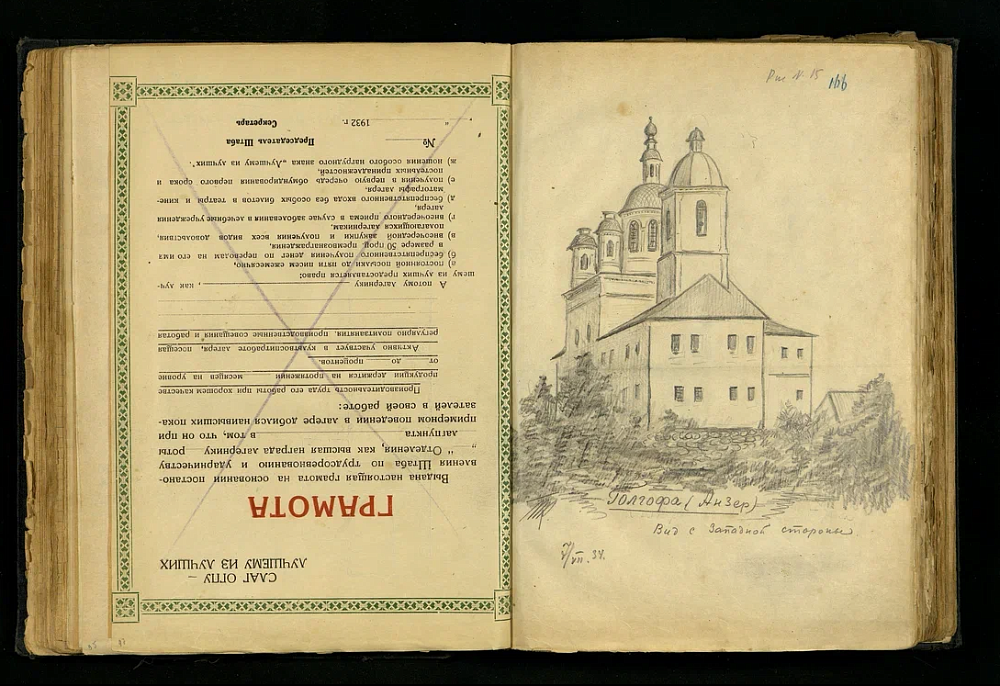 СЛАГ ОГПУ –
ЛУЧШЕМУ ИЗ ЛУЧШИХ
ГРАМОТА
Выдана настоящая грамота на основании постано-
вления Штаба по трудсоревнованию и ударничеству
„ “ Отделения, как высшая награда лагернику роты
лагпункта в том, что он при
примерном поведении в лагере добился наивысших пока-
зателей в своей работе:
Производительность труда его работы при хорошем качестве
продукции держится на протяжении месяцев на уровне
от до процентов.
Активно участвует в культвоспитработе лагеря, посещая
регулярно политзанятия, производственные совещания и работая
А потому лагернику , как луч-
шему из лучших предоставляется право:
а) постоянной посылки до пяти писем ежемесячно,
б) беспрепятственного получения денег по переводам на его имя
в размере 50 проц. премвознаграждения,
в) внеочередной закупки и получения всех видов довольствия,
полагающихся лагерникам,
г) внеочередного приема в случае заболевания в лечебные учреждения
лагеря,
д) беспрепятственного входа без особых билетов в театры и кине-
матографы лагеря,
е) получения в первую очередь обмундирования первого срока и
постельных принадлежностей,
ж) ношения особого нагрудного знака „Лучшему из лучших“.
№ Председатель Штаба
„ 1932 г. Секретарь
Рис N. 15
166
Голгофа (Анзер)
Вид с Западной стороны